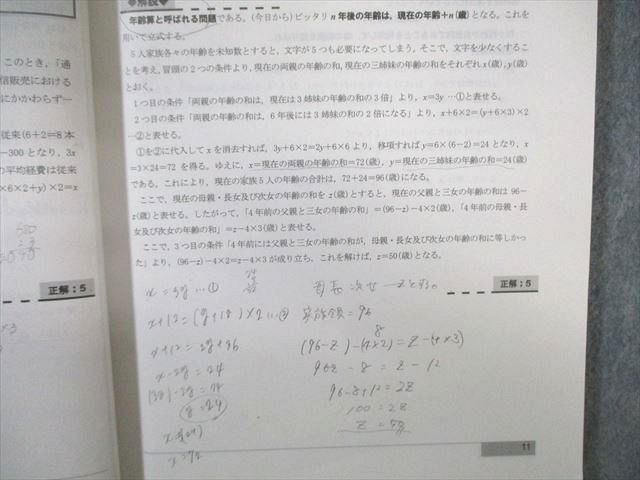 このとき，「通
信販売における
にかかわらず一
従来(6+2=8本
−300となり，3x
の平均経費は従来
×6×2+y)×2=x
正解：5
◆解説◆
年齢算と呼ばれる問題である。(今日から)ピッタリn年後の年齢は，現在の年齢+n(歳)となる。これを
用いて立式する。
5人家族各々の年齢を未知数とすると，文字が5つも必要になってしまう。そこで，文字を少なくするこ
とを考え，冒頭の2つの条件より，現在の両親の年齢の和，現在の三姉妹の年齢の和をそれぞれx(歳)，y(歳)
とおく。
1つ目の条件「両親の年齢の和は，現在は3姉妹の年齢の和の3倍」より，x=3y …①と表せる。
2つ目の条件「両親の年齢の和は，6年後には3姉妹の年齢の和の2倍になる」より，x+6×2=(y+6×3)×2
…②と表せる。
①を②に代入してxを消去すれば，3y+6×2=2y+6×6より，移項すればy=6×(6−2)=24となり，x
=3×24=72を得る。ゆえに，x=現在の両親の年齢の和=72(歳)，y=現在の三姉妹の年齢の和=24(歳)
である。これにより，現在の家族5人の年齢の合計は，72+24=96(歳)になる。
ここで，現在の母親・長女及び次女の年齢の和をz(歳)とすると，現在の父親と三女の年齢の和は96−
z(歳)と表せる。したがって，「4年前の父親と三女の年齢の和」=(96−z)−4×2(歳)，「4年前の母親・長
女及び次女の年齢の和」=z−4×3(歳)と表せる。
ここで，3つ目の条件「4年前には父親と三女の年齢の和が，母親・長女及び次女の年齢の和に等しかっ
た」より，(96−z)−4×2=z−4×3が成り立ち，これを解けば，z=50(歳)となる。
正解：5
x=3y…①
x+12=(y+18)×2…②
x+12=2y+36
x-2y=24
(3y)-2y=24
y=24
x=72
家族領=96
8
(96-z)-(4×2)=z-(4×3)
96z-8=z-12
96-8+12=2z
100=2z
z=50
11